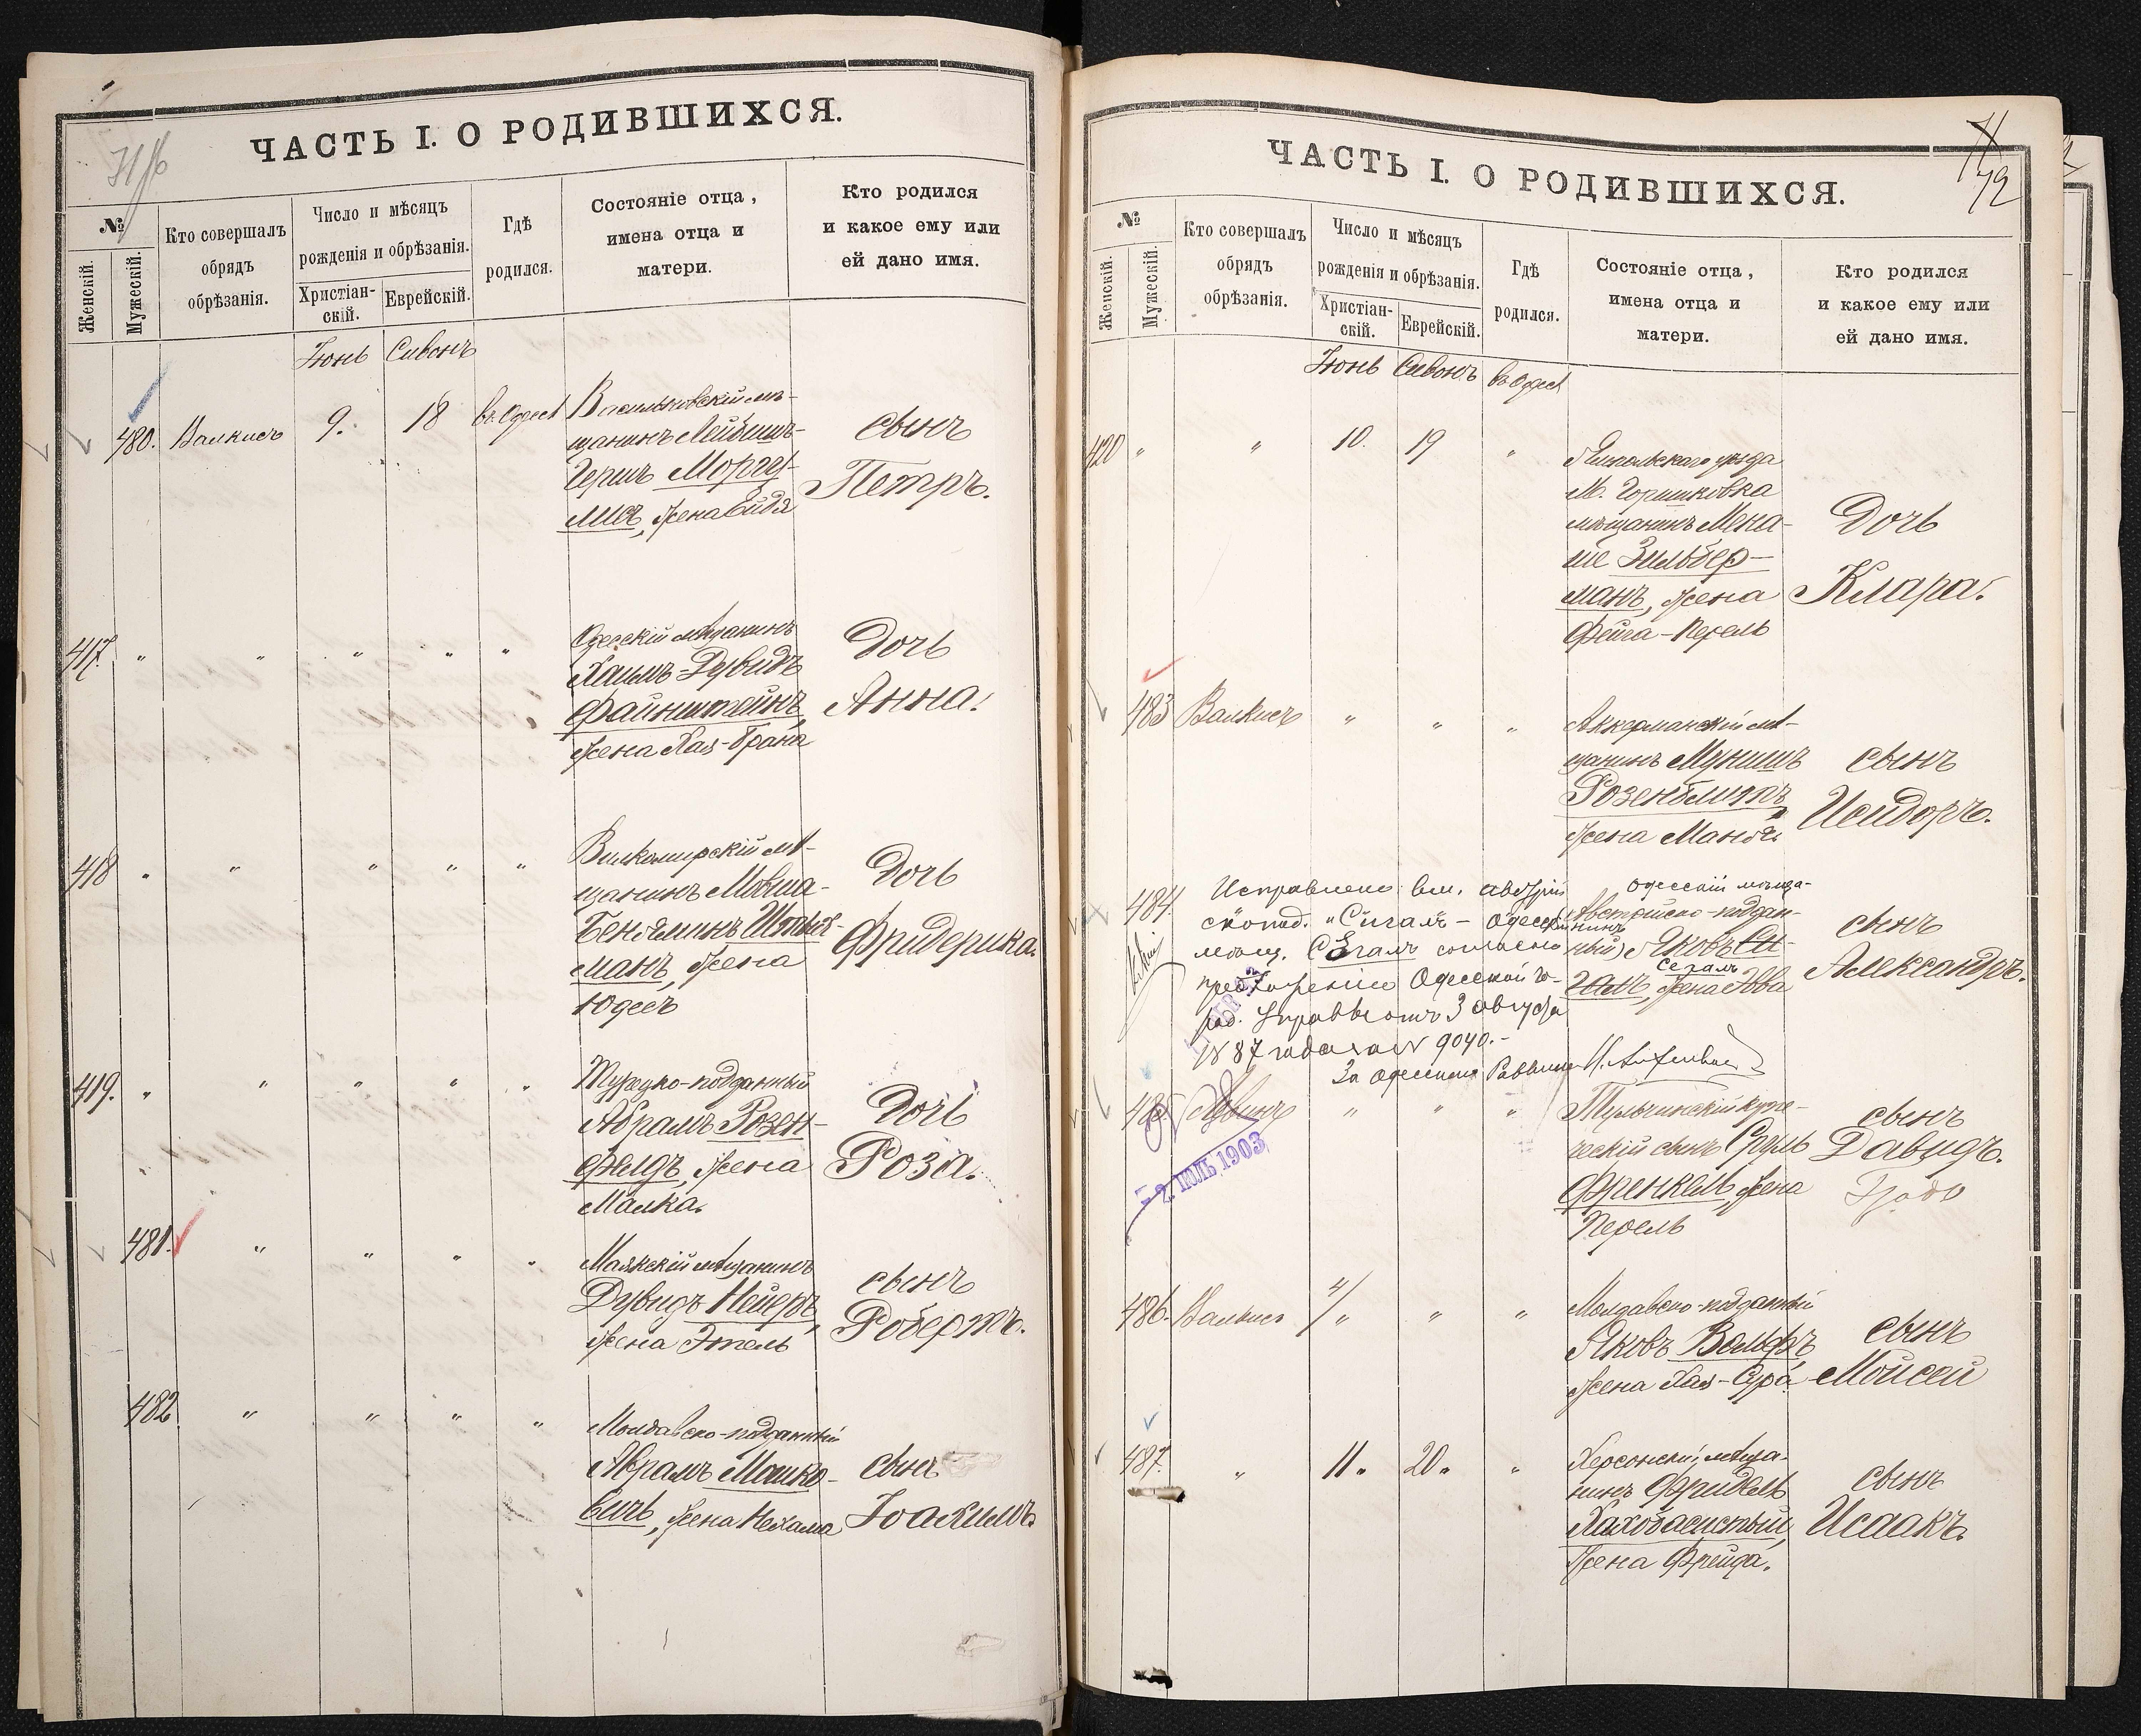 ЧАСТЬ I. О РОДИВШИХСЯ.
№
Женскій.
Мужескій.
Кто совершалъ
обрядъ
обрѣзанія.
Число и мѣсяцъ
рожденія и обрѣзанія.
Христіан-
скій.
Еврейскій.
Гдѣ
родился.
Состояніе отца,
имена отца и
матери.
Кто родился
и какое ему или
ей дано имя.
Іюнь Сивонъ
480. Валкисъ 9. 18 въ Одессѣ
Васильковскій мѣ-
щанинъ Лейбишъ-
Гершъ Моргу-
лисъ, жена Ейдя
сынъ
Петръ.
417. " " " " "
Одесскій мѣщанинъ
Хаимъ-Дувидъ
Файнштейнъ,
жена Хая-Брана
Дочь
Анна.
418 " " " " "
Вилкомирскій мѣ-
щанинъ Мовша-
Беньяминъ
манъ, жена
Юдесъ
Дочь
Фридерика.
419. " " " " "
Турецко-подданный
Абрамъ Розен-
фельдъ, жена
Малка.
Дочь
Роза.
481. " " " "
Маякскій мѣщанинъ
Дувидъ Нейеръ,
жена Этель
сынъ
Робертъ.
482 " " " "
Молдавско-подданный
Абрамъ Машко-
вичъ, жена Нехама
сынъ
Іоахимъ.
ЧАСТЬ I. О РОДИВШИХСЯ.
71
72
№
Женскій.
Мужескій.
Кто совершалъ
обрядъ
обрѣзанія.
Число и мѣсяцъ
рожденія и обрѣзанія.
Христіан-
скій.
Еврейскій.
Гдѣ
родился.
Состояніе отца,
имена отца и
матери.
Кто родился
и какое ему или
ей дано имя.
Іюнь Сивонъ въ Одессѣ
420 " " 10. 19 "
Ямпольскаго уѣзда
М. Горишковка
мѣщанинъ Мена-
ше Зильбер-
манъ, жена
Фейга-Перель
Дочь
Клара.
483 Валкисъ " " "
Аккерманскій мѣ-
щанинъ Мунишъ
Розенблитъ,
жена Мандя
сынъ
Исидоръ.
484.
Исправлено вм. австрій
скопод. "Сигалъ - Одесскій
мѣщ. Сегалъ согласно
предложенію Одесской Го-
род. Управы отъ 3 августа
1887 года за № 9040.-
За Одесскаго Раввина
Одесскій мѣща-
нинъ
Австрійско-поддан-
ный) Яковъ Си-
Сегалъ
галъ, жена Эва
сынъ
Александръ.
485. Левинъ " " "
Тульчинскій купе-
ческій сынъ Сруль
Френкель, жена
Перель
сынъ
Давидъ.
2. ІЮЛЬ 1903
486. Валкисъ " " "
Молдавско-подданный
Яковъ Вольфъ
жена Хая-Сура
сынъ
Мойсей
487. " 11. 20. "
Херсонскій мѣща-
нинъ Фридель
жена Фрейда.
сынъ
Исаакъ.